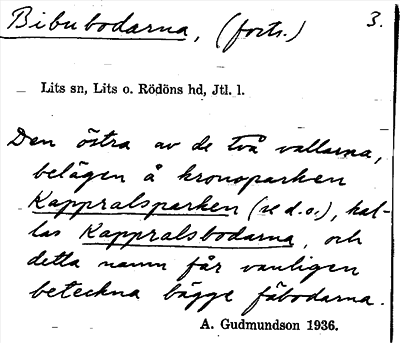 Bibubodarna, (forts.) 3.
Lits sn, Lits o. Rödöns hd, Jtl. l.
Den östra av de två vallarna,
belägen å kronoparken
Kappralsparken (se d.o.), kal-
las Kappralsbodarna, och
detta namn får vanligen
beteckna bägge fäbodarna.
A. Gudmundson 1936.